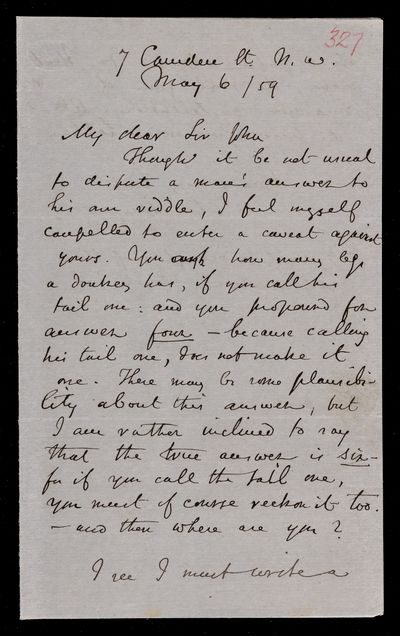 327
7 Camden St. N. W.
May 6 / 59
My dear Sir John
Though it be not usual
to dispute a man's answer to
his own riddle, I feel myself
compelled to enter a caveat against
yours. You ask how many legs
a donkey has, if you call his
tail one: and you propound for
answer four – because calling
his tail one, does not make it
one. There may be some plausibi-
lity about this answer, but
I am rather inclined to say
that the true answer is six –
for if you call the tail one,
you must of course reckon it too.
– and then where are you?
I see I must write a